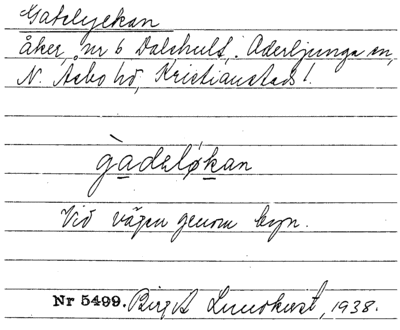 Gatslyckan
åker, nr 6 Dalshult, Oderljunga sn,
N. Åsbo hd, Kristianstads l.
gadsløkan
Vid vägen genom byn.
Nr 5499. Birgit Lundkvist, 1938.